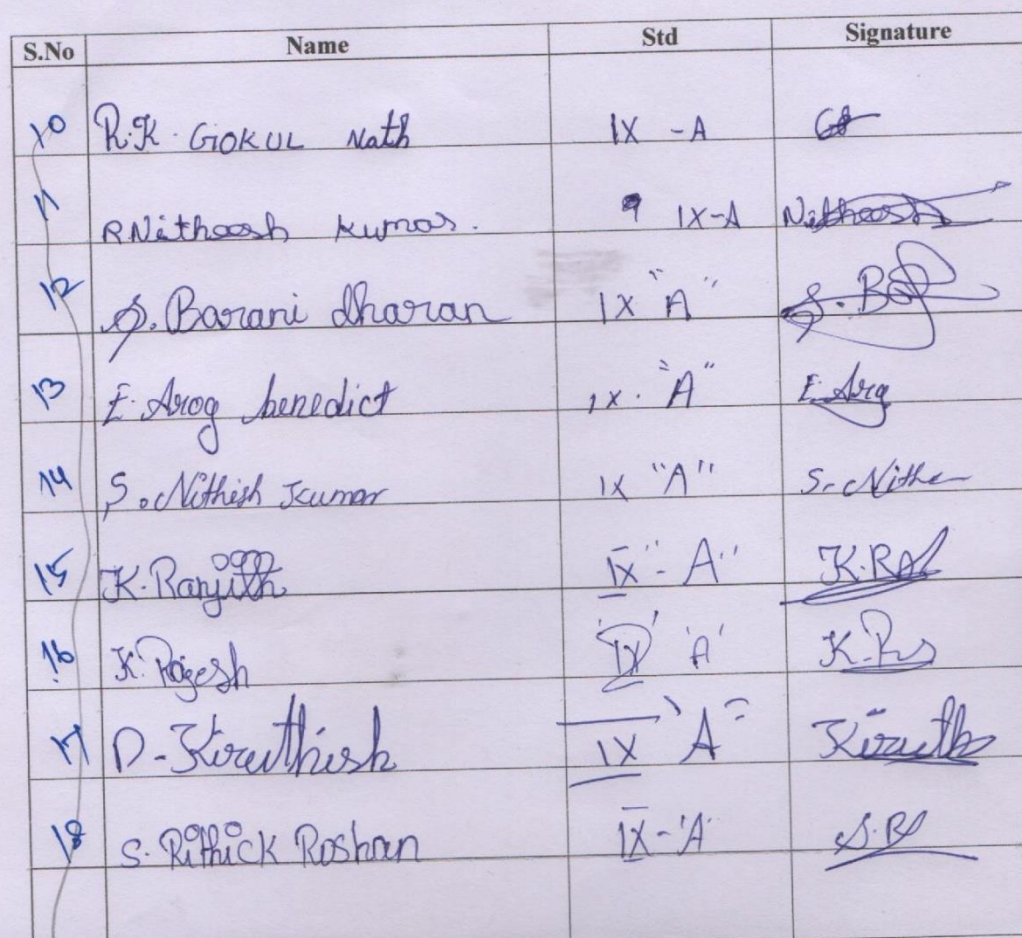 S.No Name Std Signature
10 R.K. GOKUL Nath IX - A
11 R.Nithoosh Kumar. 9 IX-A Nithoosh
12 S. Barani dharan IX "A" S.
13 E. Arog benedict IX. "A" E. Arg
14 S. Nithish Kumar IX "A" S. Nithe
15 K. Ranjith IX - "A" K.
16 K. Rajesh IX 'A' K.
17 D - Kiruthish IX "A" Kiruth
18 S. Rithick Roshan IX - 'A' S.R